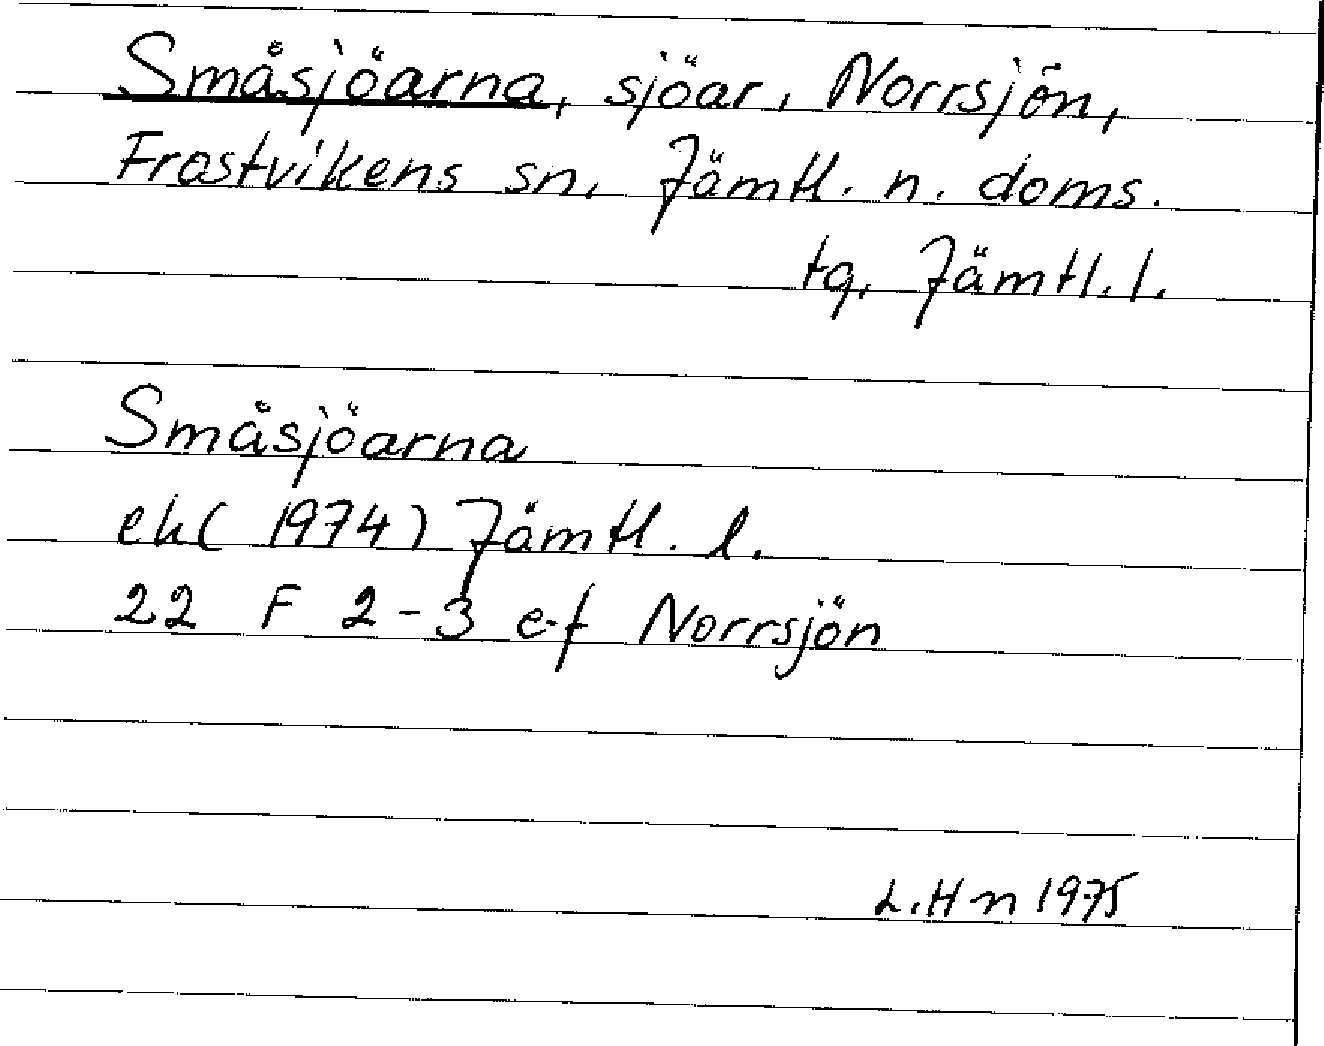 Småsjöarna, sjöar, Norrsjön,
Frostvikens sn, Jämtl. n. doms.
tg, Jämtl. l.
Småsjöarna
ek ( 1974) Jämtl. l.
22 F 2-3 e-f Norrsjön
L.Hn 1975